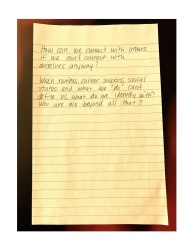 How can we connect with others
if we don't connect with
ourselves anyway?
When names, career success, social
status and what we "do" can't
define us, what do we identify with?
Who are we beyond all that?